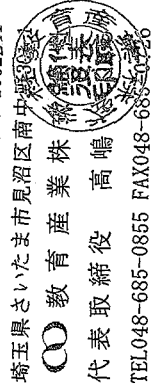 埼玉県さいたま市見沼区南中
教育産業株
代表取締役 高嶋
TEL048-685-0855 FAX048-685-